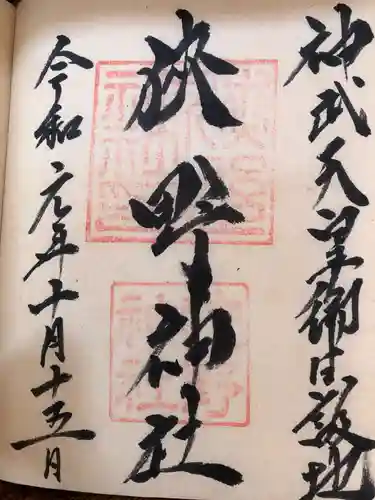 神武天皇御生誕地
狹野神社
令和元年十月十五日